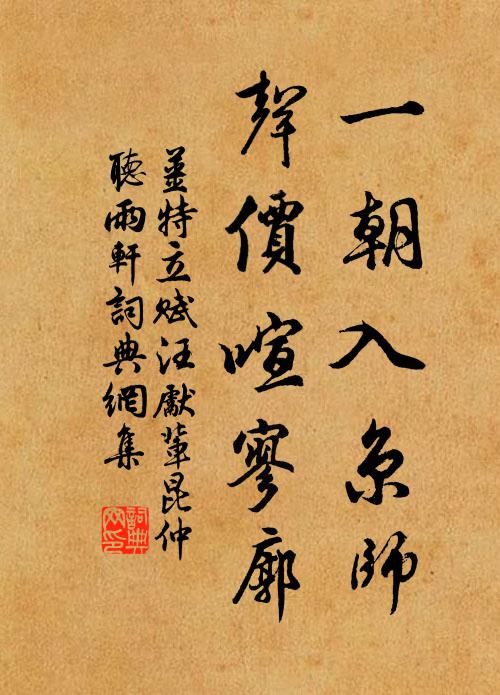 一朝入京師
聲價喧寥廓
薑特立賦汪獻輩昆仲
聽雨軒詞典網集
詞典網印